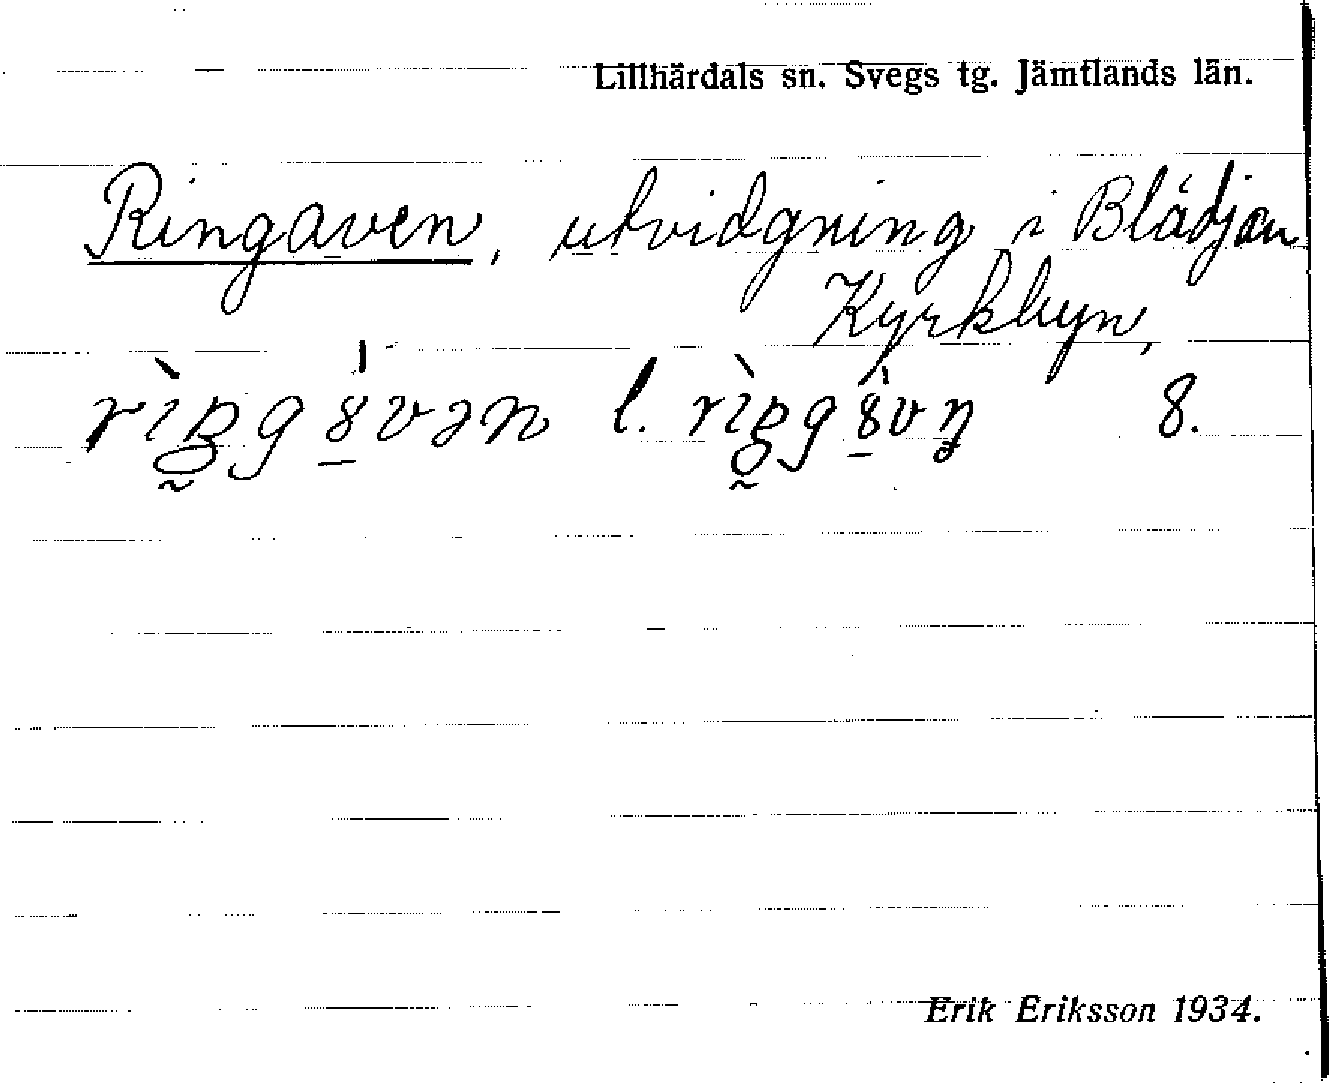 Lillhärdals sn. Svegs tg. Jämtlands län.
Ringaven, utvidgning i Blädjan
Kyrkbyn,
l. 8.
Erik Eriksson 1934.